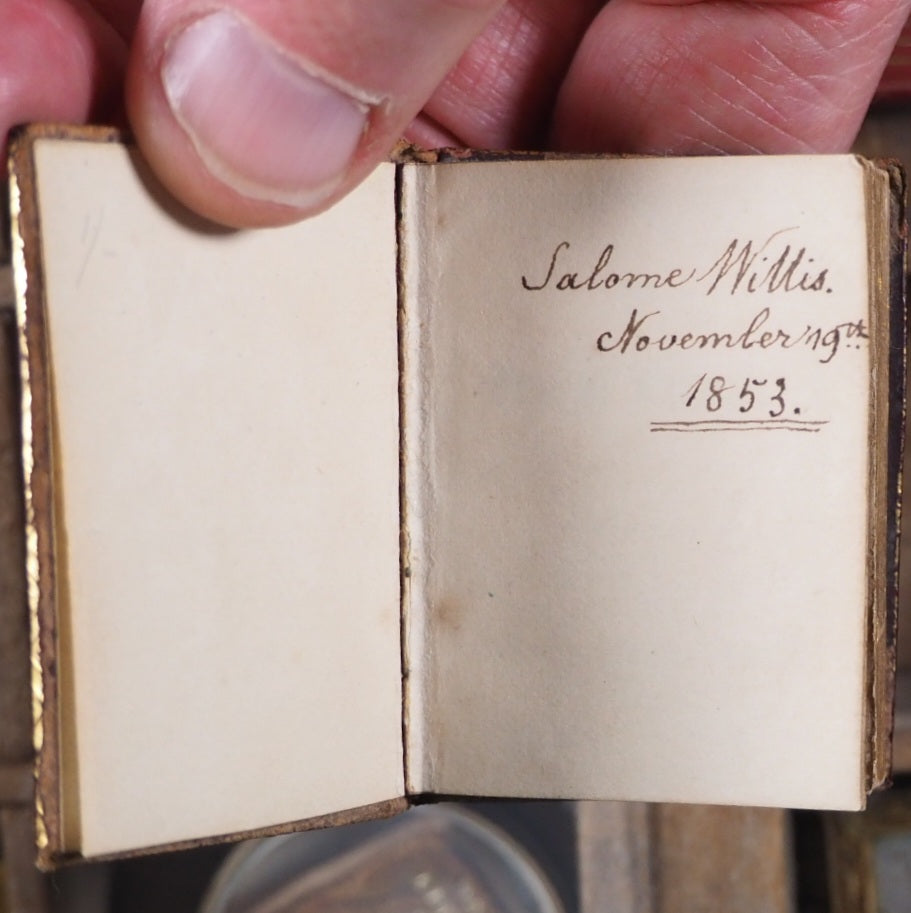 Salome Willis.
November 19th
1853.